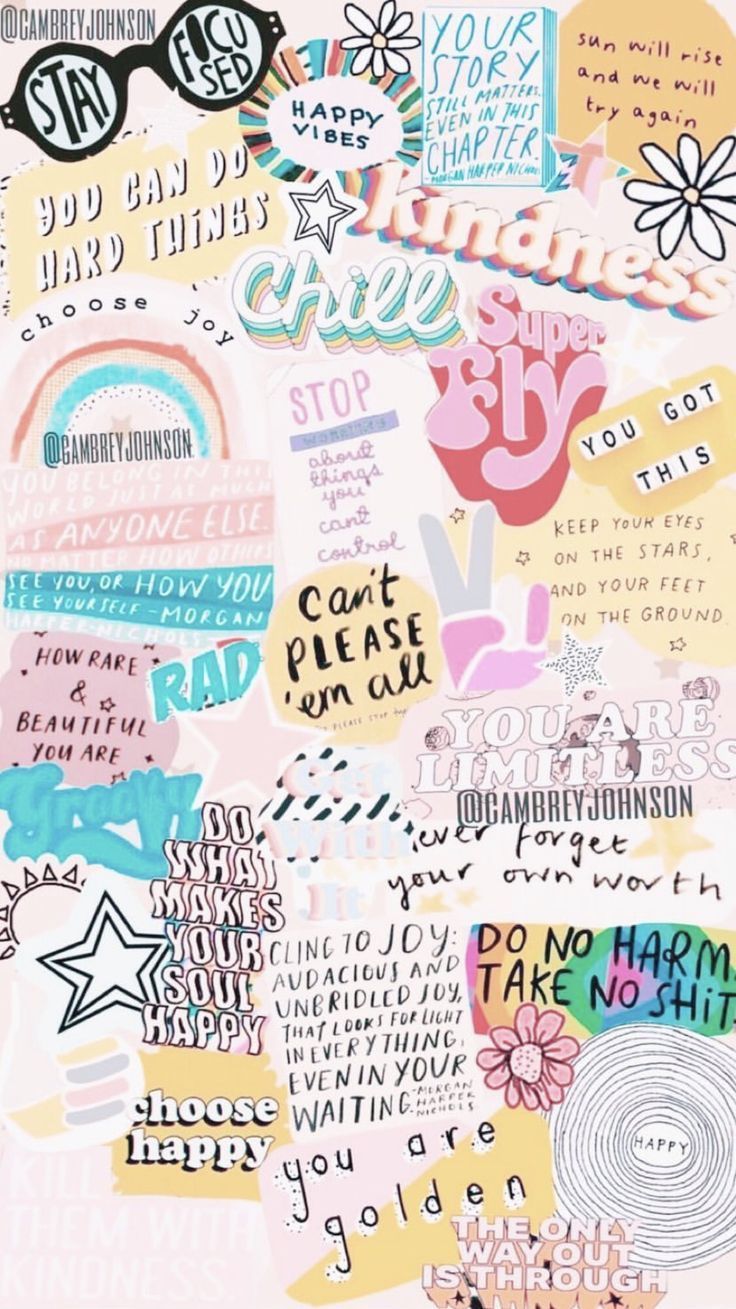 @CAMBREYJOHNSON
STAY
FOCU
SED
HAPPY
VIBES
YOUR
STORY
STILL MATTERS,
EVEN IN THIS
CHAPTER.
-MORGAN HARPER NICHOLS
sun will rise
and we will
try again
YOU CAN DO
HARD THINGS
kindness
Chill
choose joy
@CAMBREYJOHNSON
Super
Fly
STOP
WORRYING
about
things
you
cant
control
YOU GOT
THIS
YOU BELONG IN THIS
WORLD JUST AS MUCH
AS ANYONE ELSE.
NO MATTER HOW OTHERS
SEE YOU, OR HOW YOU
SEE YOURSELF-MORGAN
HARPER-NICHOLS
KEEP YOUR EYES
ON THE STARS,
AND YOUR FEET
ON THE GROUND
Can't
PLEASE
'em all
HOW RARE
&
BEAUTIFUL
YOU ARE
RAD
YOU ARE
LIMITLESS
@CAMBREYJOHNSON
Groovy
Get
With
It
ever forget
your own worth
DO
WHAT
MAKES
YOUR
SOUL
HAPPY
CLING TO JOY:
AUDACIOUS AND
UNBRIDLED JOY,
THAT LOOKS FOR LIGHT
IN EVERYTHING,
EVEN IN YOUR
WAITING.
-MORGAN
HARPER
NICHOLS
DO NO HARM.
TAKE NO SHIT.
choose
happy
HAPPY
you are
golden
KILL
THEM WITH
KINDNESS.
THE ONLY
WAY OUT
IS THROUGH